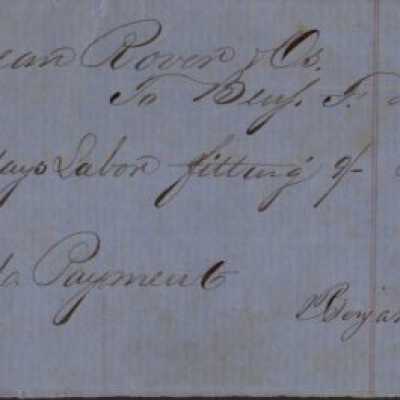 ean Rover & Co.
To Benj. F.
days Labor fitting of
Payment
Benja